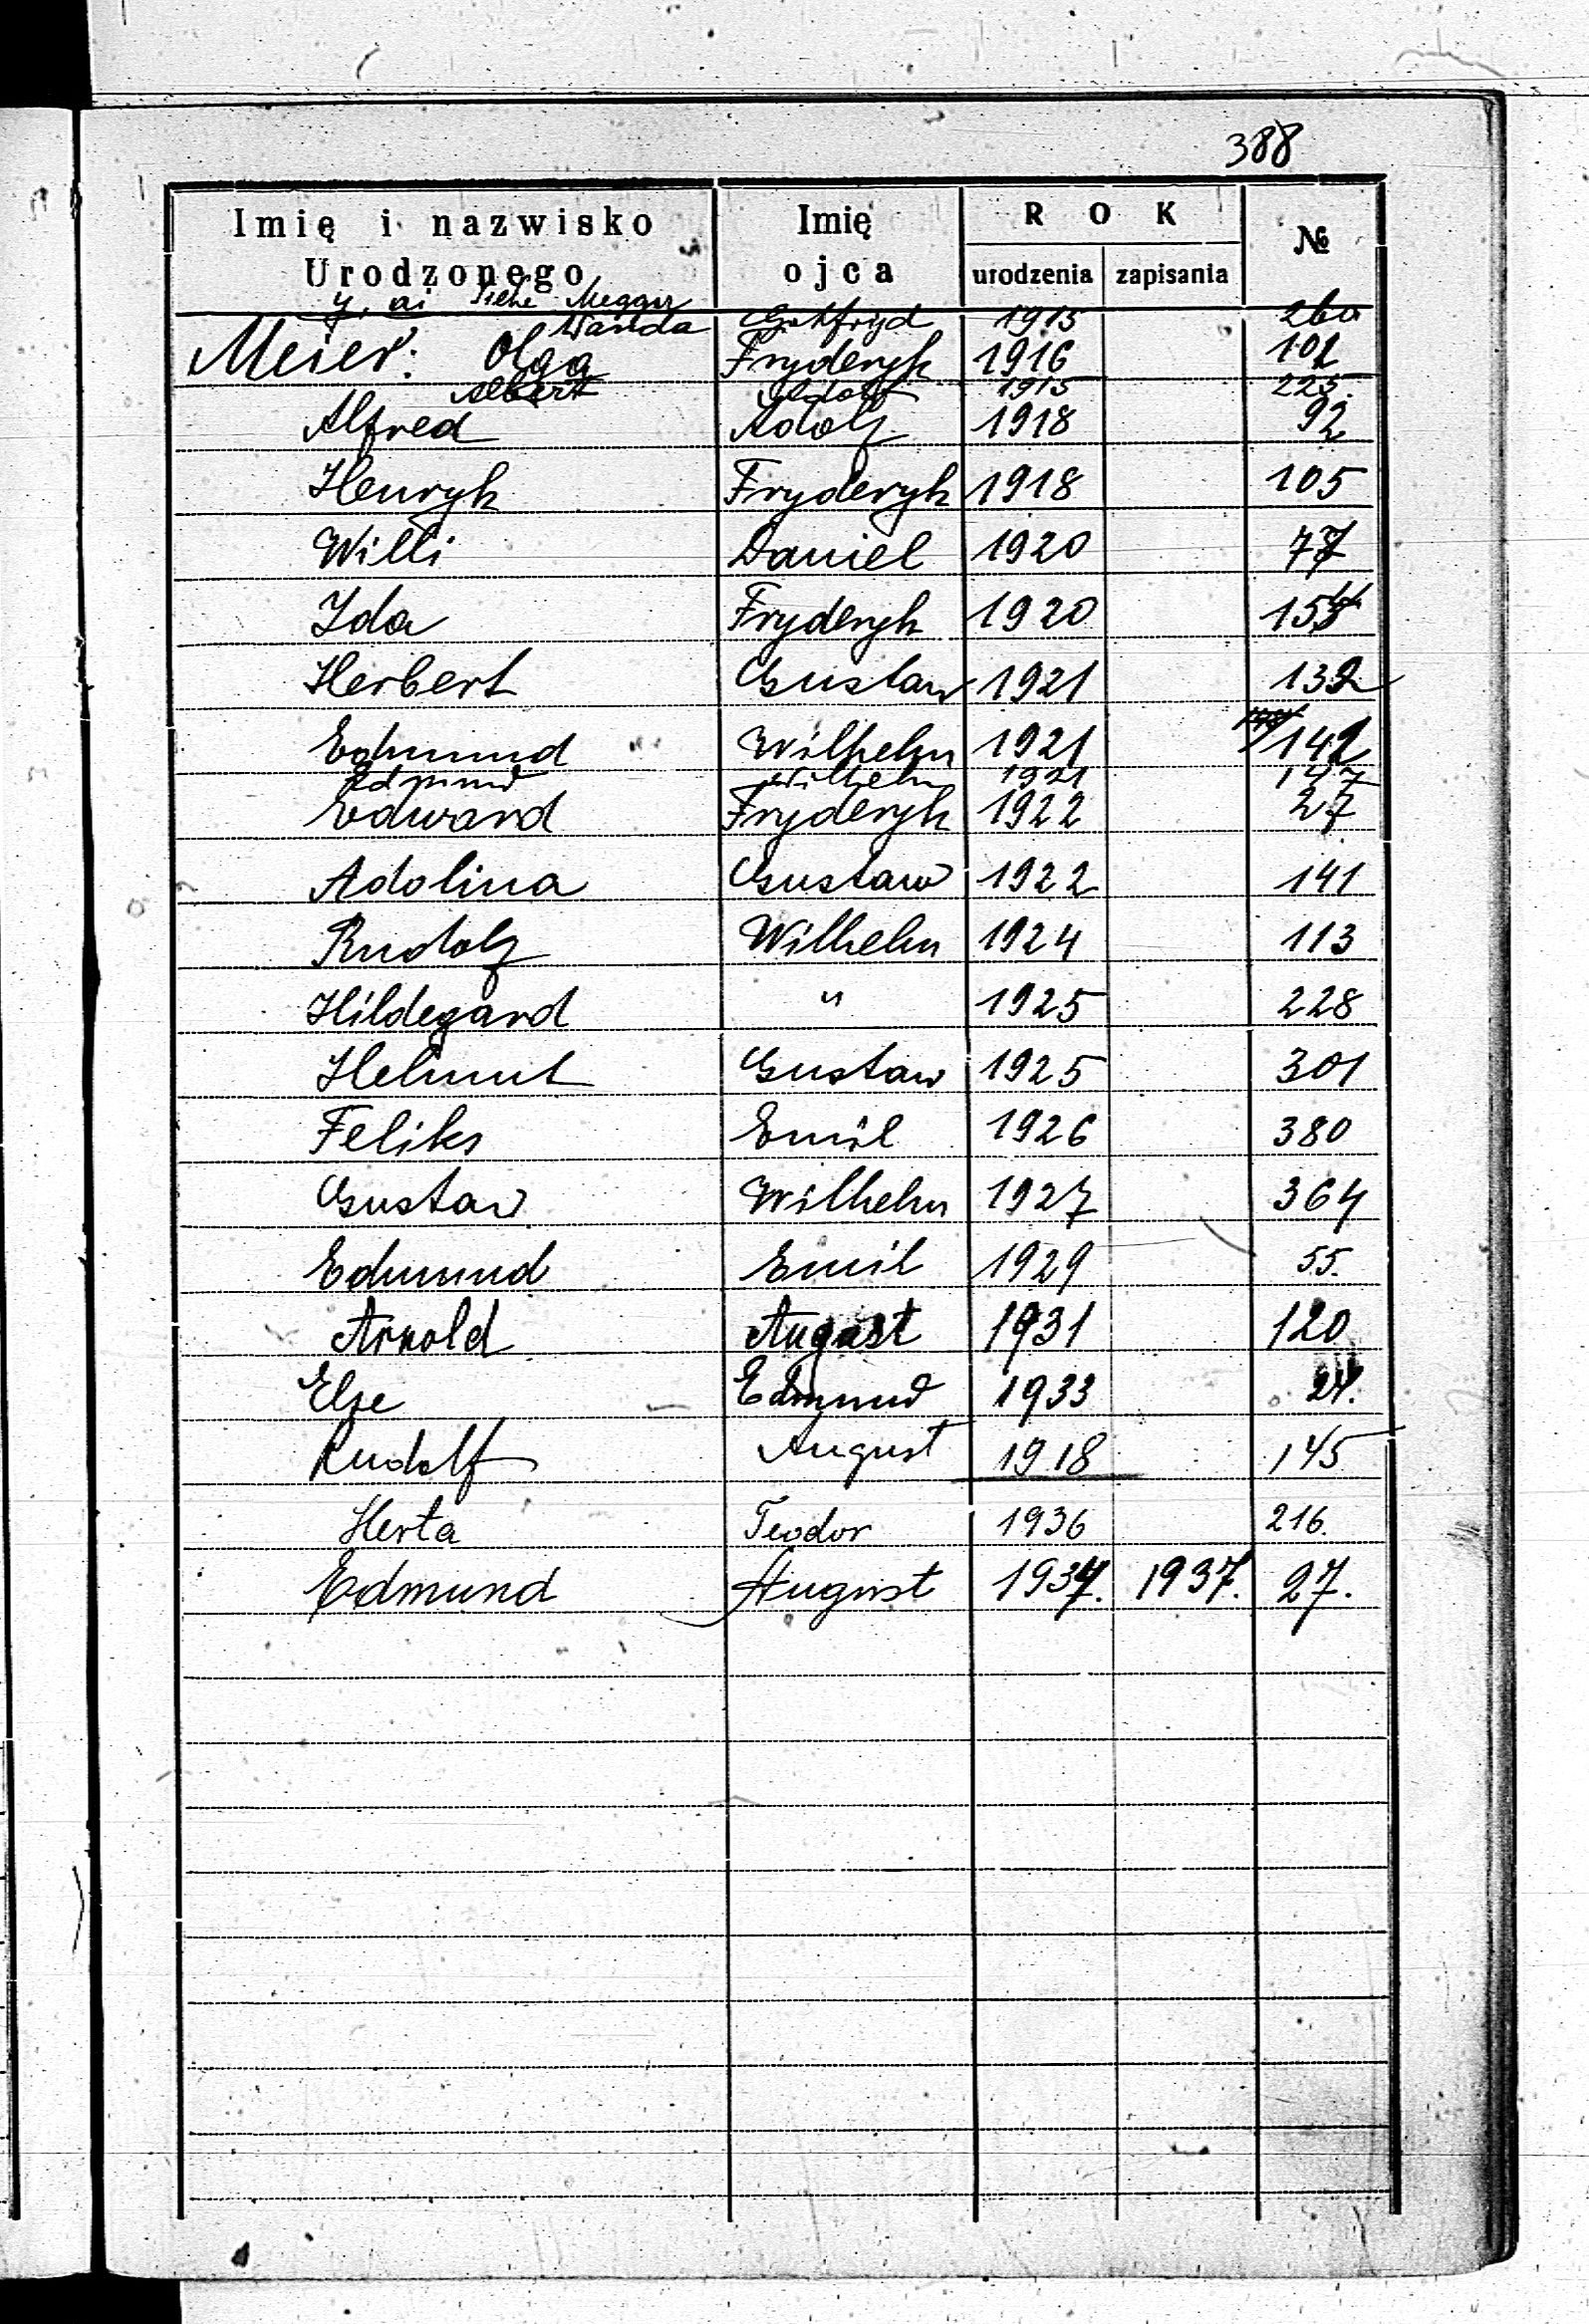 388
Imię i nazwisko Urodzonego Imię ojca ROK urodzenia zapisania №
y, ai siehe Megger
Wanda Gottfryd 1915 26a
Meier: Olga Fryderyk 1916 101
Albert Adolf 1915 225.
Alfred Adolf 1918 92
Henryk Fryderyk 1918 105
Willi Daniel 1920 77
Ida Fryderyk 1920 154
Herbert Gustaw 1921 132
Edmund Wilhelm 1921 142
Edmund Wilhelm 1921 147
Edward Fryderyk 1922 27
Adolina Gustaw 1922 141
Rudolf Wilhelm 1924 113
Hildegard " 1925 228
Helmut Gustaw 1925 301
Feliks Emil 1926 380
Gustaw Wilhelm 1927 364
Edmund Emil 1929 55.
Arnold August 1931 120
Else Edmund 1933 24.
Rudolf August 1918 145
Herta Teodor 1936 216.
Edmund August 1937. 1937. 27.